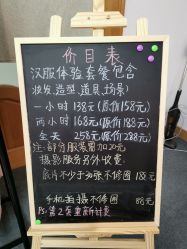 价目表
汉服体验套餐包含
妆发、造型、道具、场景)
一小时 138元(原价158元)
两小时 168元(原价188元)
全天 258元(原价288元)
注:部分服装累加20元
摄影服务另外收费
底片不少于30张不修图 188元
手机拍摄不修图 88元
PS:第2套重新计费